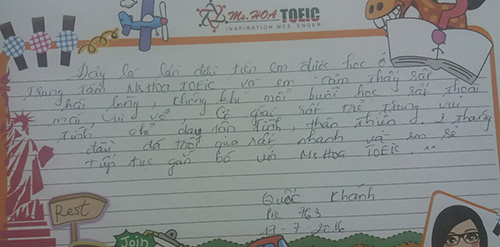 Ms.HOA TOEIC
INSPIRATION MESSENGER
Đây là lần đầu tiên em được học ở
trung tâm Ms Hoa TOEIC và em cảm thấy rất
hài lòng, không khí mỗi buổi học rất thoải
mái vui vẻ. Cô giáo rất trẻ trung vui
tính chỉ dạy tận tình, thân thiện. 1 tháng
đầu đã trôi qua rất nhanh và em sẽ
tiếp tục gắn bó với Ms Hoa TOEIC
Quốc Khánh
Pre 763
17-7-2016
Rest
Join